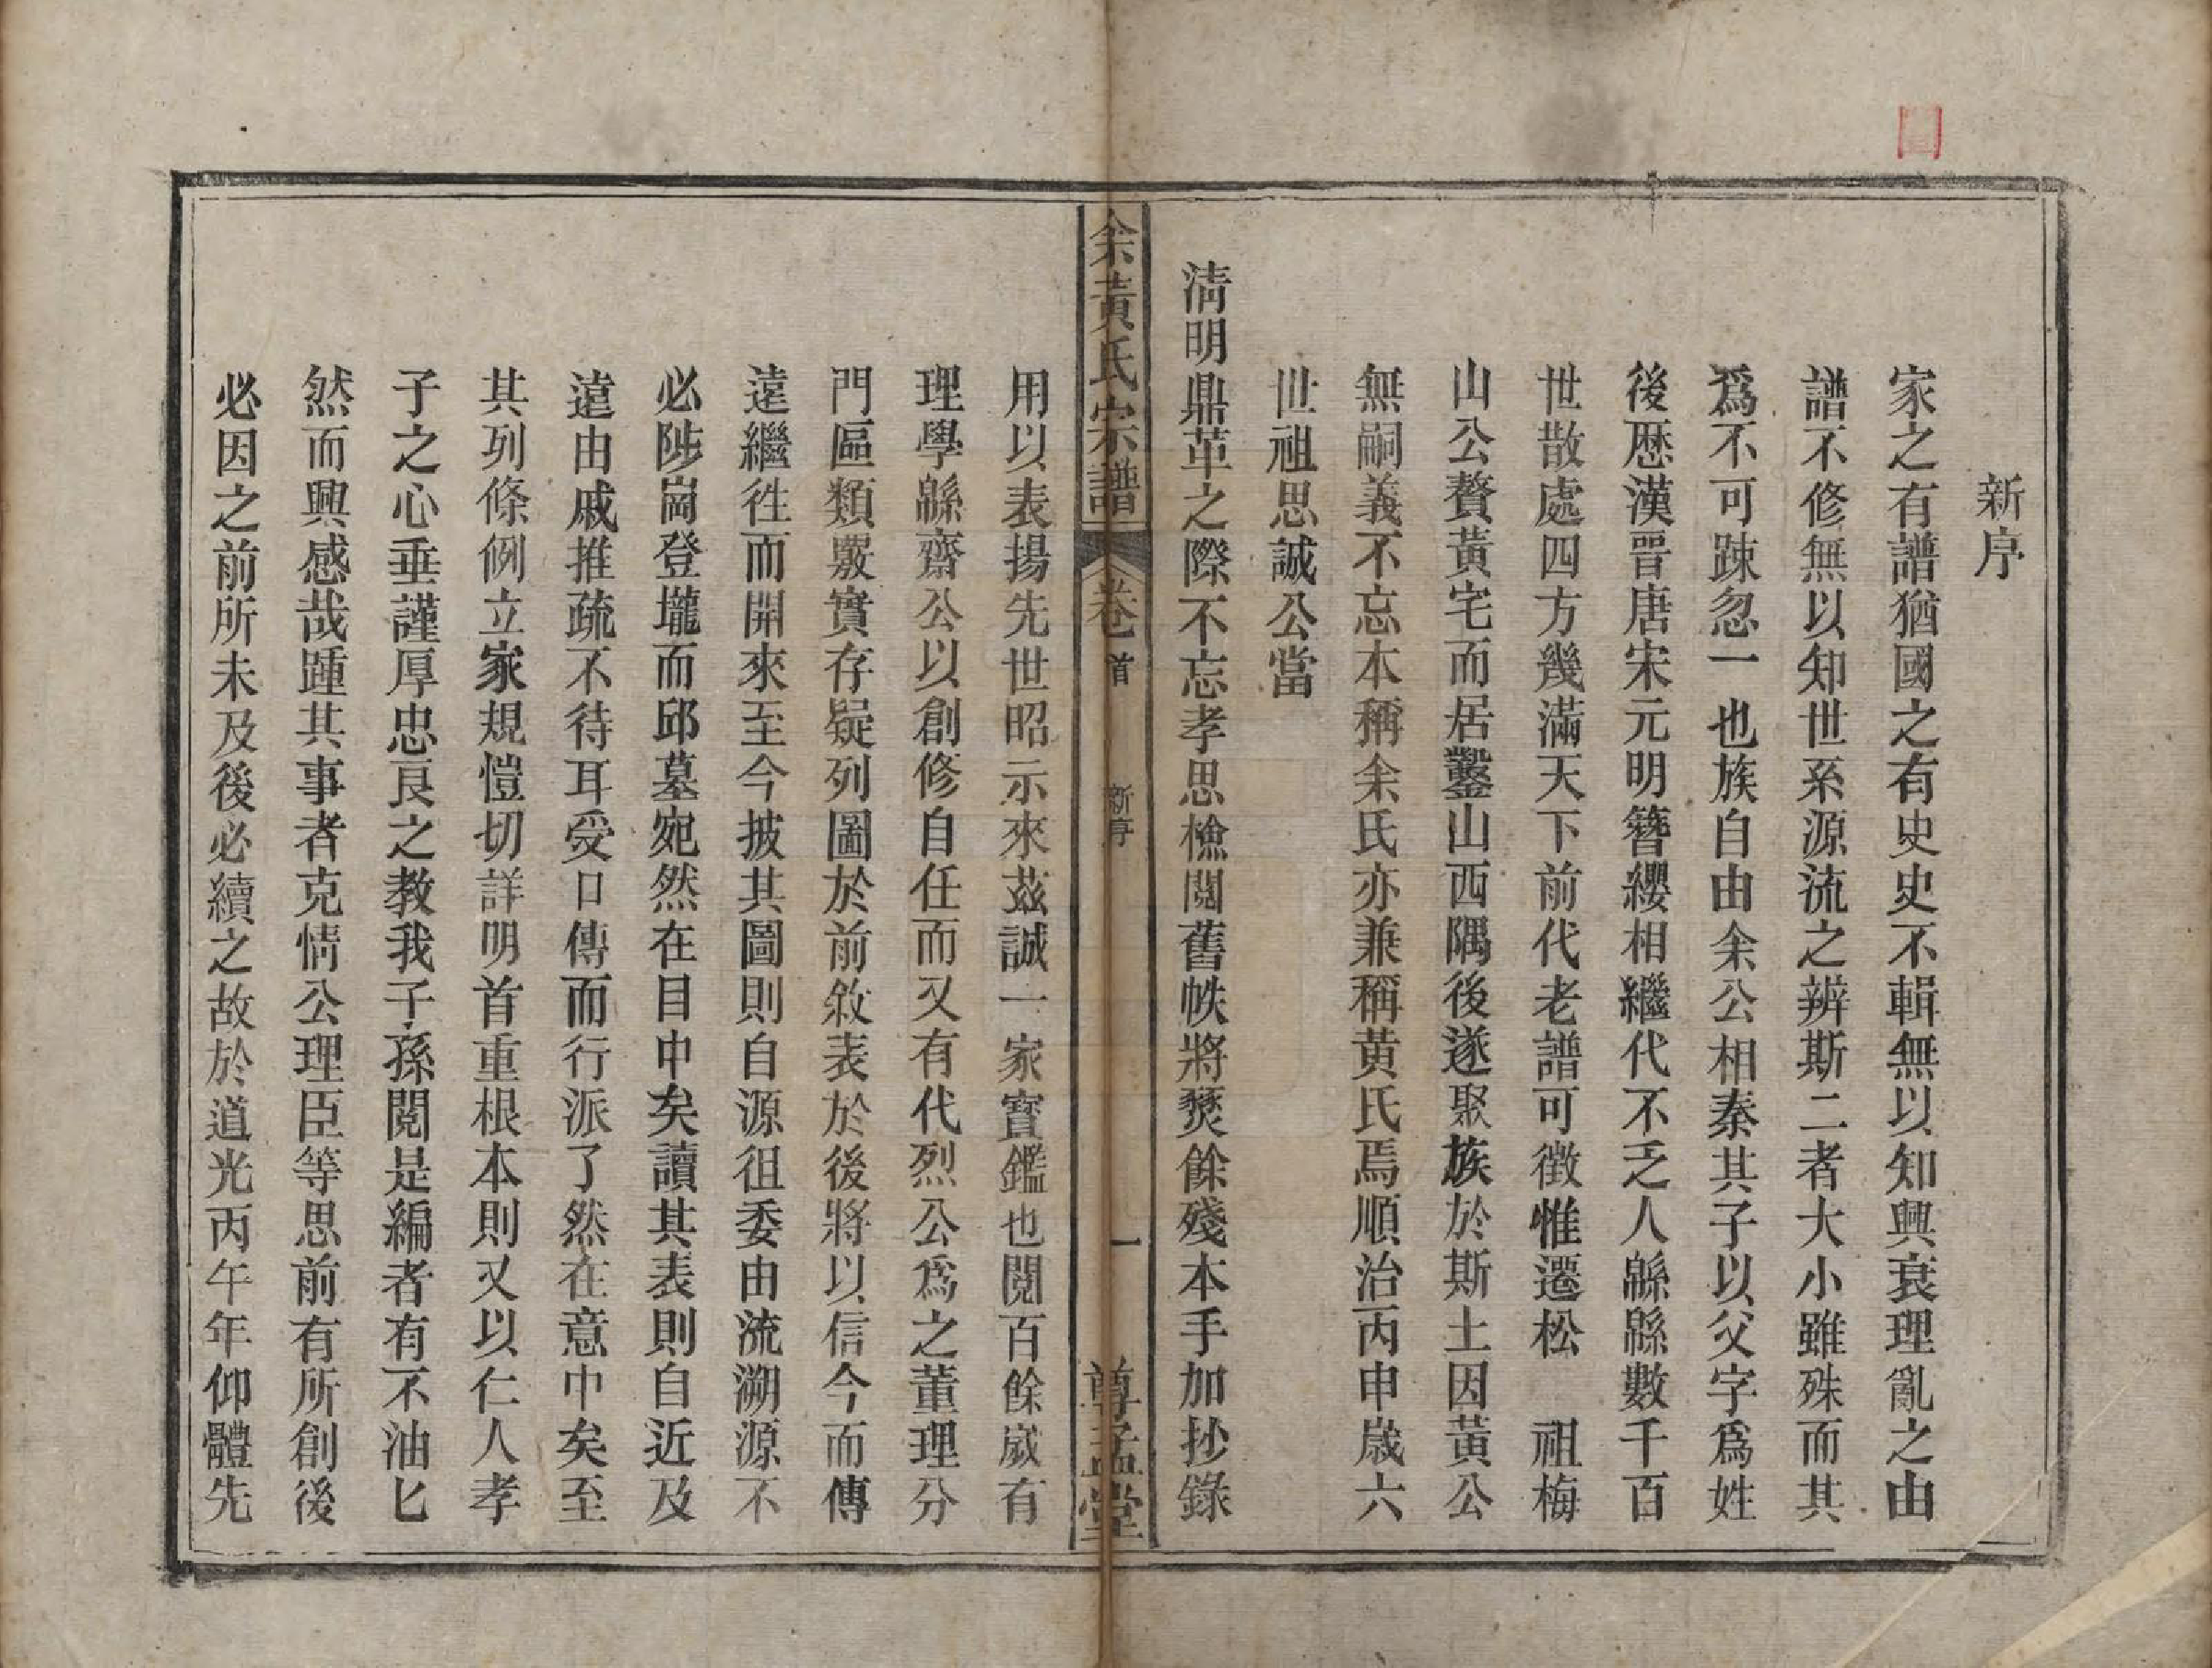 新序
家之有譜猶國之有史史不輯無以知興衰理亂之由
譜不修無以知世系源流之辨斯二者大小雖殊而其
爲不可踈忽一也族自由余公相秦其子以父字爲姓
後歷漢晋唐宋元明簪纓相繼代不乏人緜緜數千百
世散處四方幾滿天下前代老譜可徵惟遷松　祖梅
山公贅黃宅而居鑿山西隅後遂聚族於斯土因黃公
無嗣義不忘本稱余氏亦兼稱黄氏焉順治丙申歲六
世祖思誠公當
淸明鼎革之際不忘孝思檢閱舊帙將燹餘殘本手加抄錄
余黃氏宗譜 卷首 新序 一 尊孟堂
用以表揚先世昭示來茲誠一家寳鑑也閱百餘歲有
理學緜齋公以創修自任而又有代烈公爲之董理分
門區類覈實存疑列圖於前敘表於後將以信今而傳
遠繼徃而開來至今披其圖則自源徂委由流溯源不
必陟崗登壠而邱墓宛然在目中矣讀其表則自近及
遠由戚推疏不待耳受口傳而行派了然在意中矣至
其列條例立家規愷切詳明首重根本則又以仁人孝
子之心垂謹厚忠良之教我子孫閱是編者有不油匕
然而興感哉踵其事者克情公理臣等思前有所創後
必因之前所未及後必續之故於道光丙午年仰體先